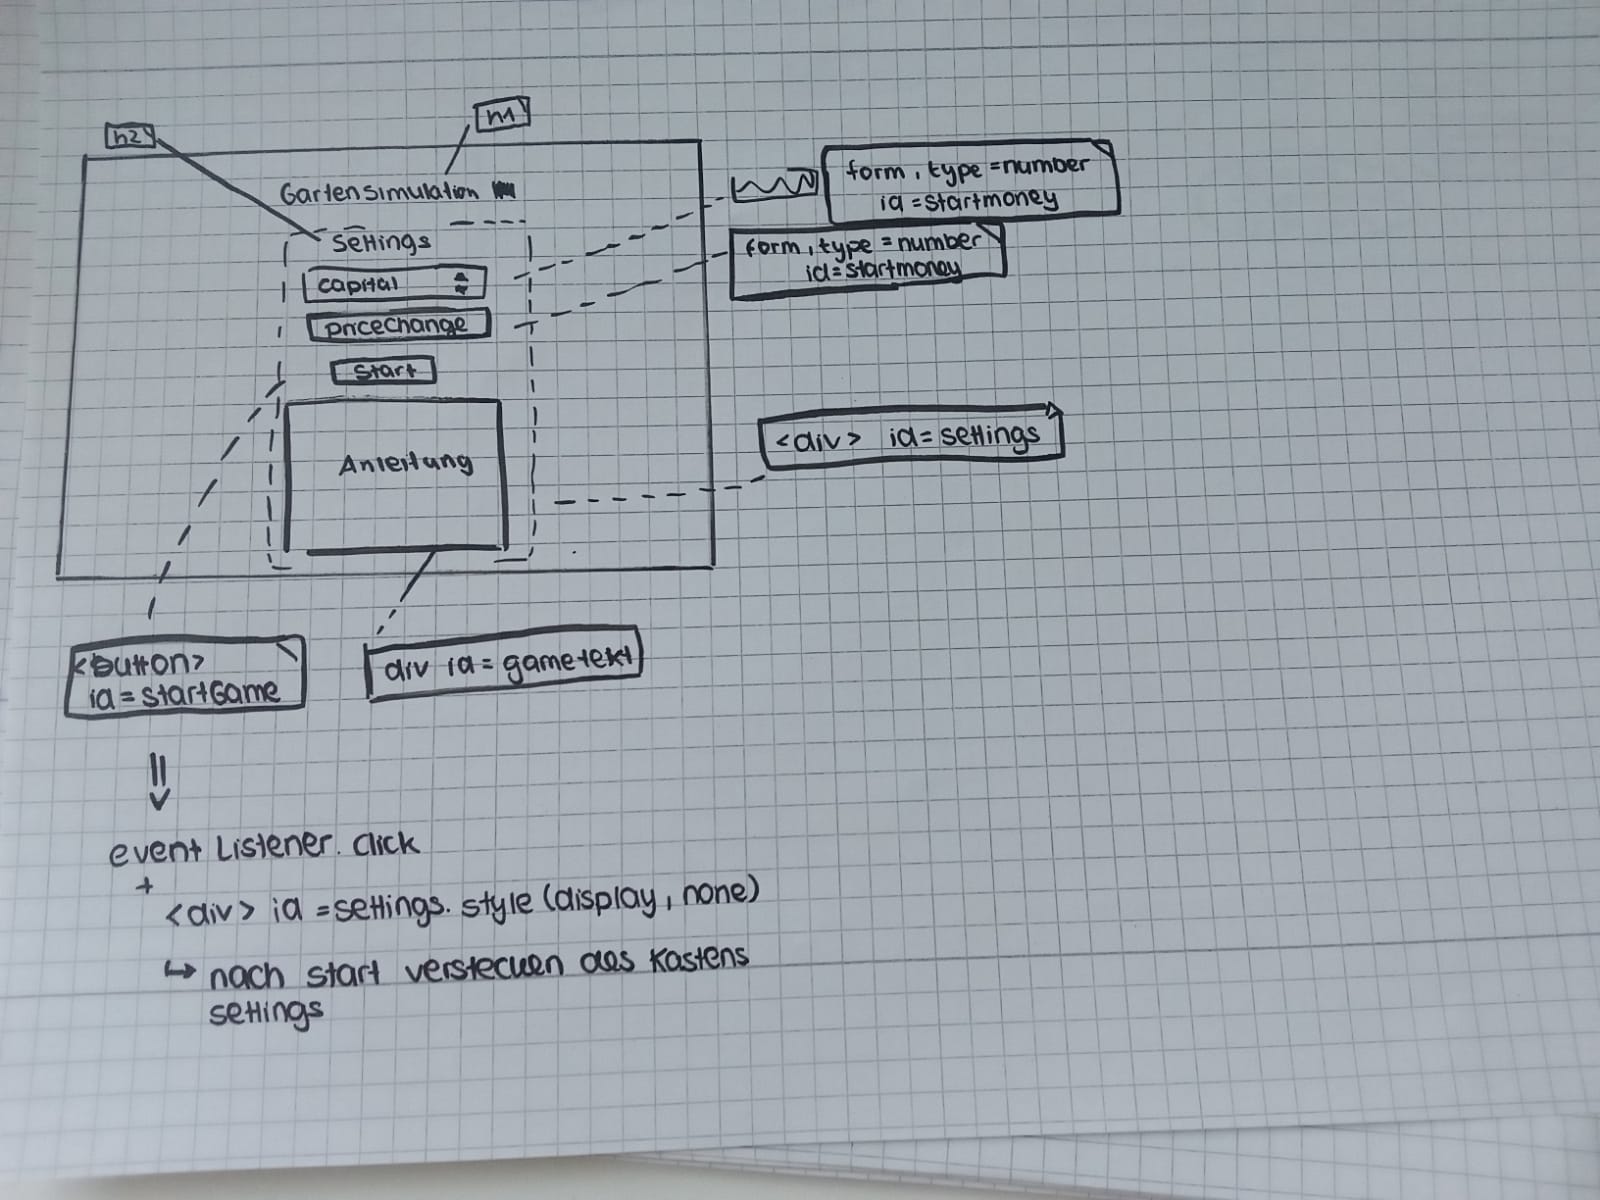 h2
h1
Gartensimulation
Settings
capital
pricechange
Start
Anleitung
form, type=number
id=startmoney
form, type=number
id=startmoney
<div> id=settings
<button>
id=startGame
div id=gametext
event Listener. click
+
<div> id =settings. style (display, none)
↳ nach start verstecken des Kastens
settings